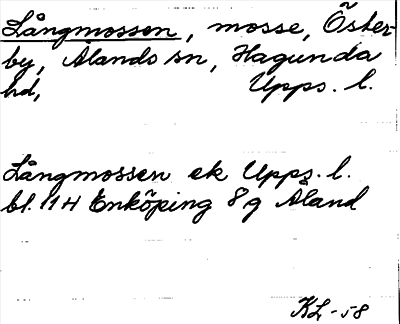 Långmossen, mosse, Öster-
by, Ålands sn, Hagunda
hd, Upps. l.
Långmossen ek Upps. l.
bl. 11H Enköping 8g Åland
KL-58